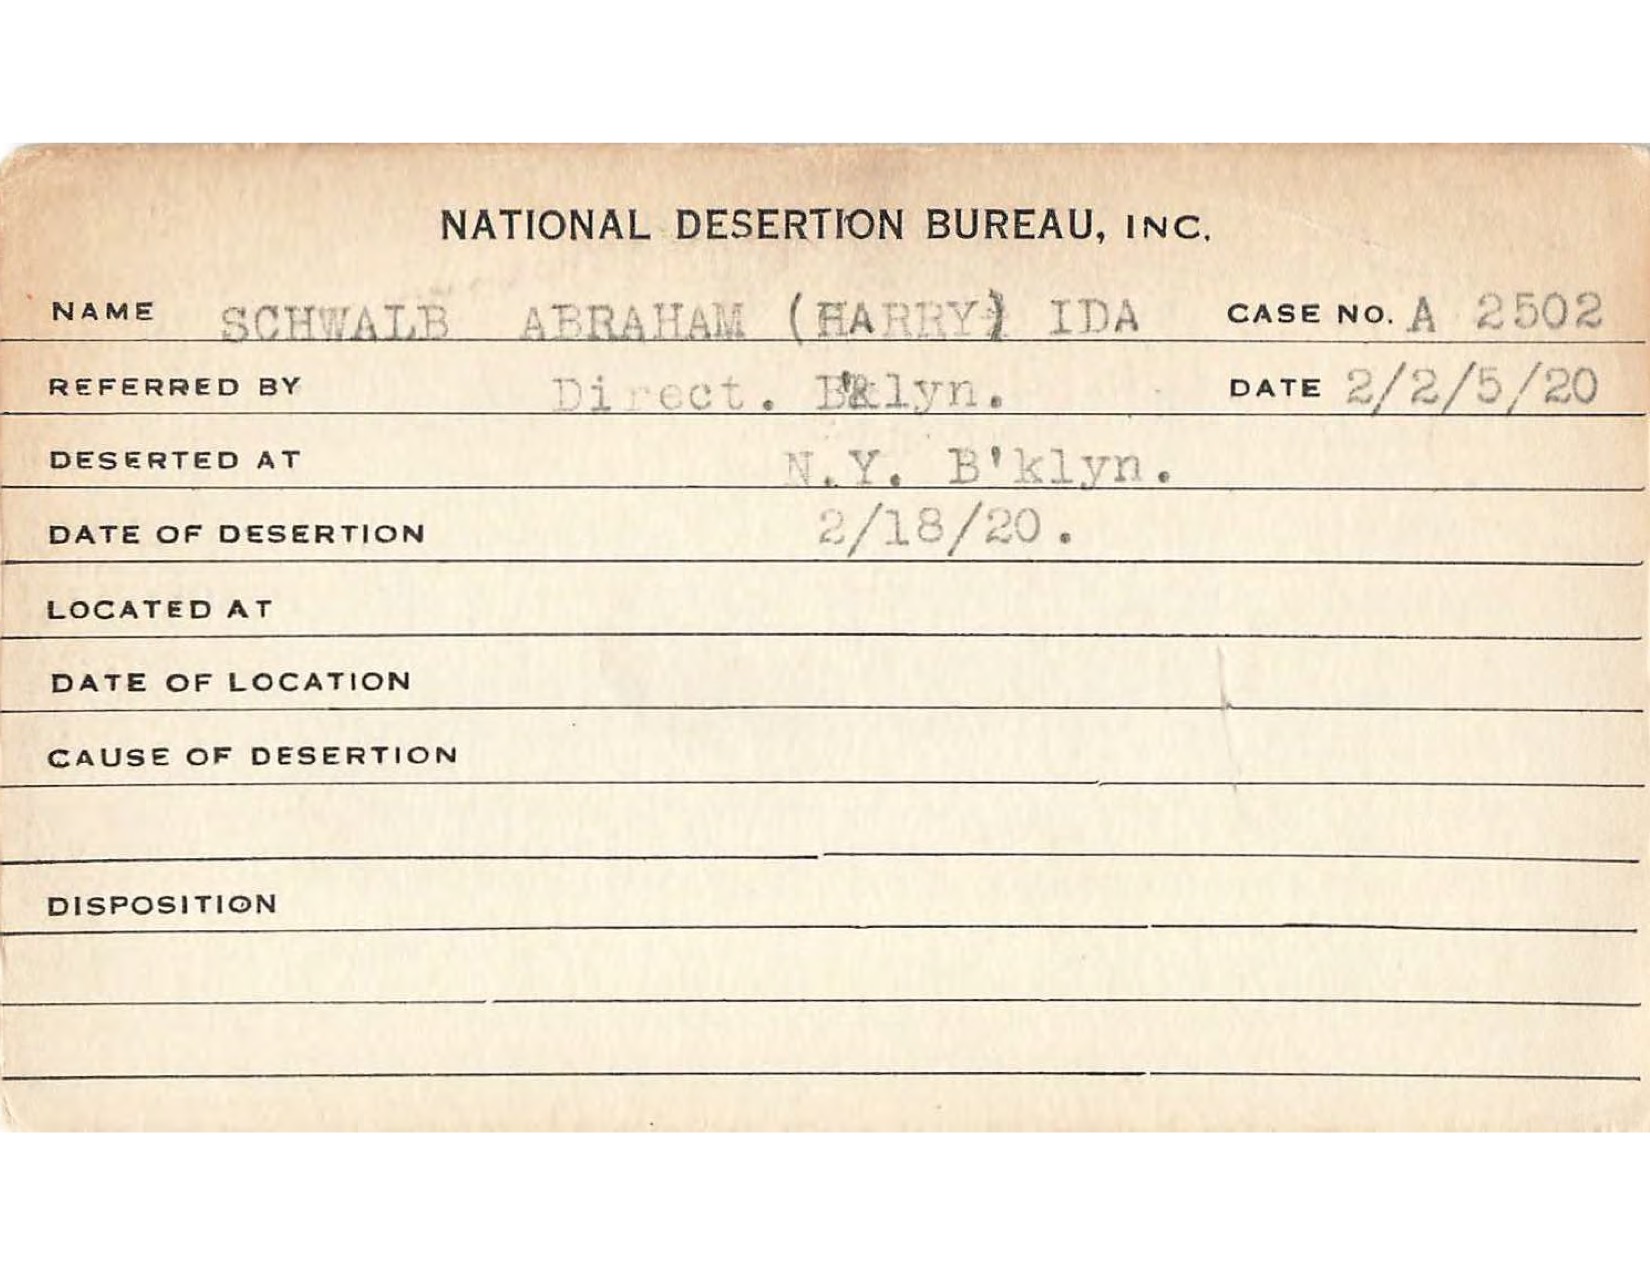 NATIONAL DESERTION BUREAU, INC.
NAME SCHWALB ABRAHAM (HARRY) IDA CASE NO. A 2502
REFERRED BY Direct. B'klyn. DATE 2/2/5/20
DESERTED AT N.Y. B'klyn.
DATE OF DESERTION 2/18/20.
LOCATED AT
DATE OF LOCATION
CAUSE OF DESERTION
DISPOSITION